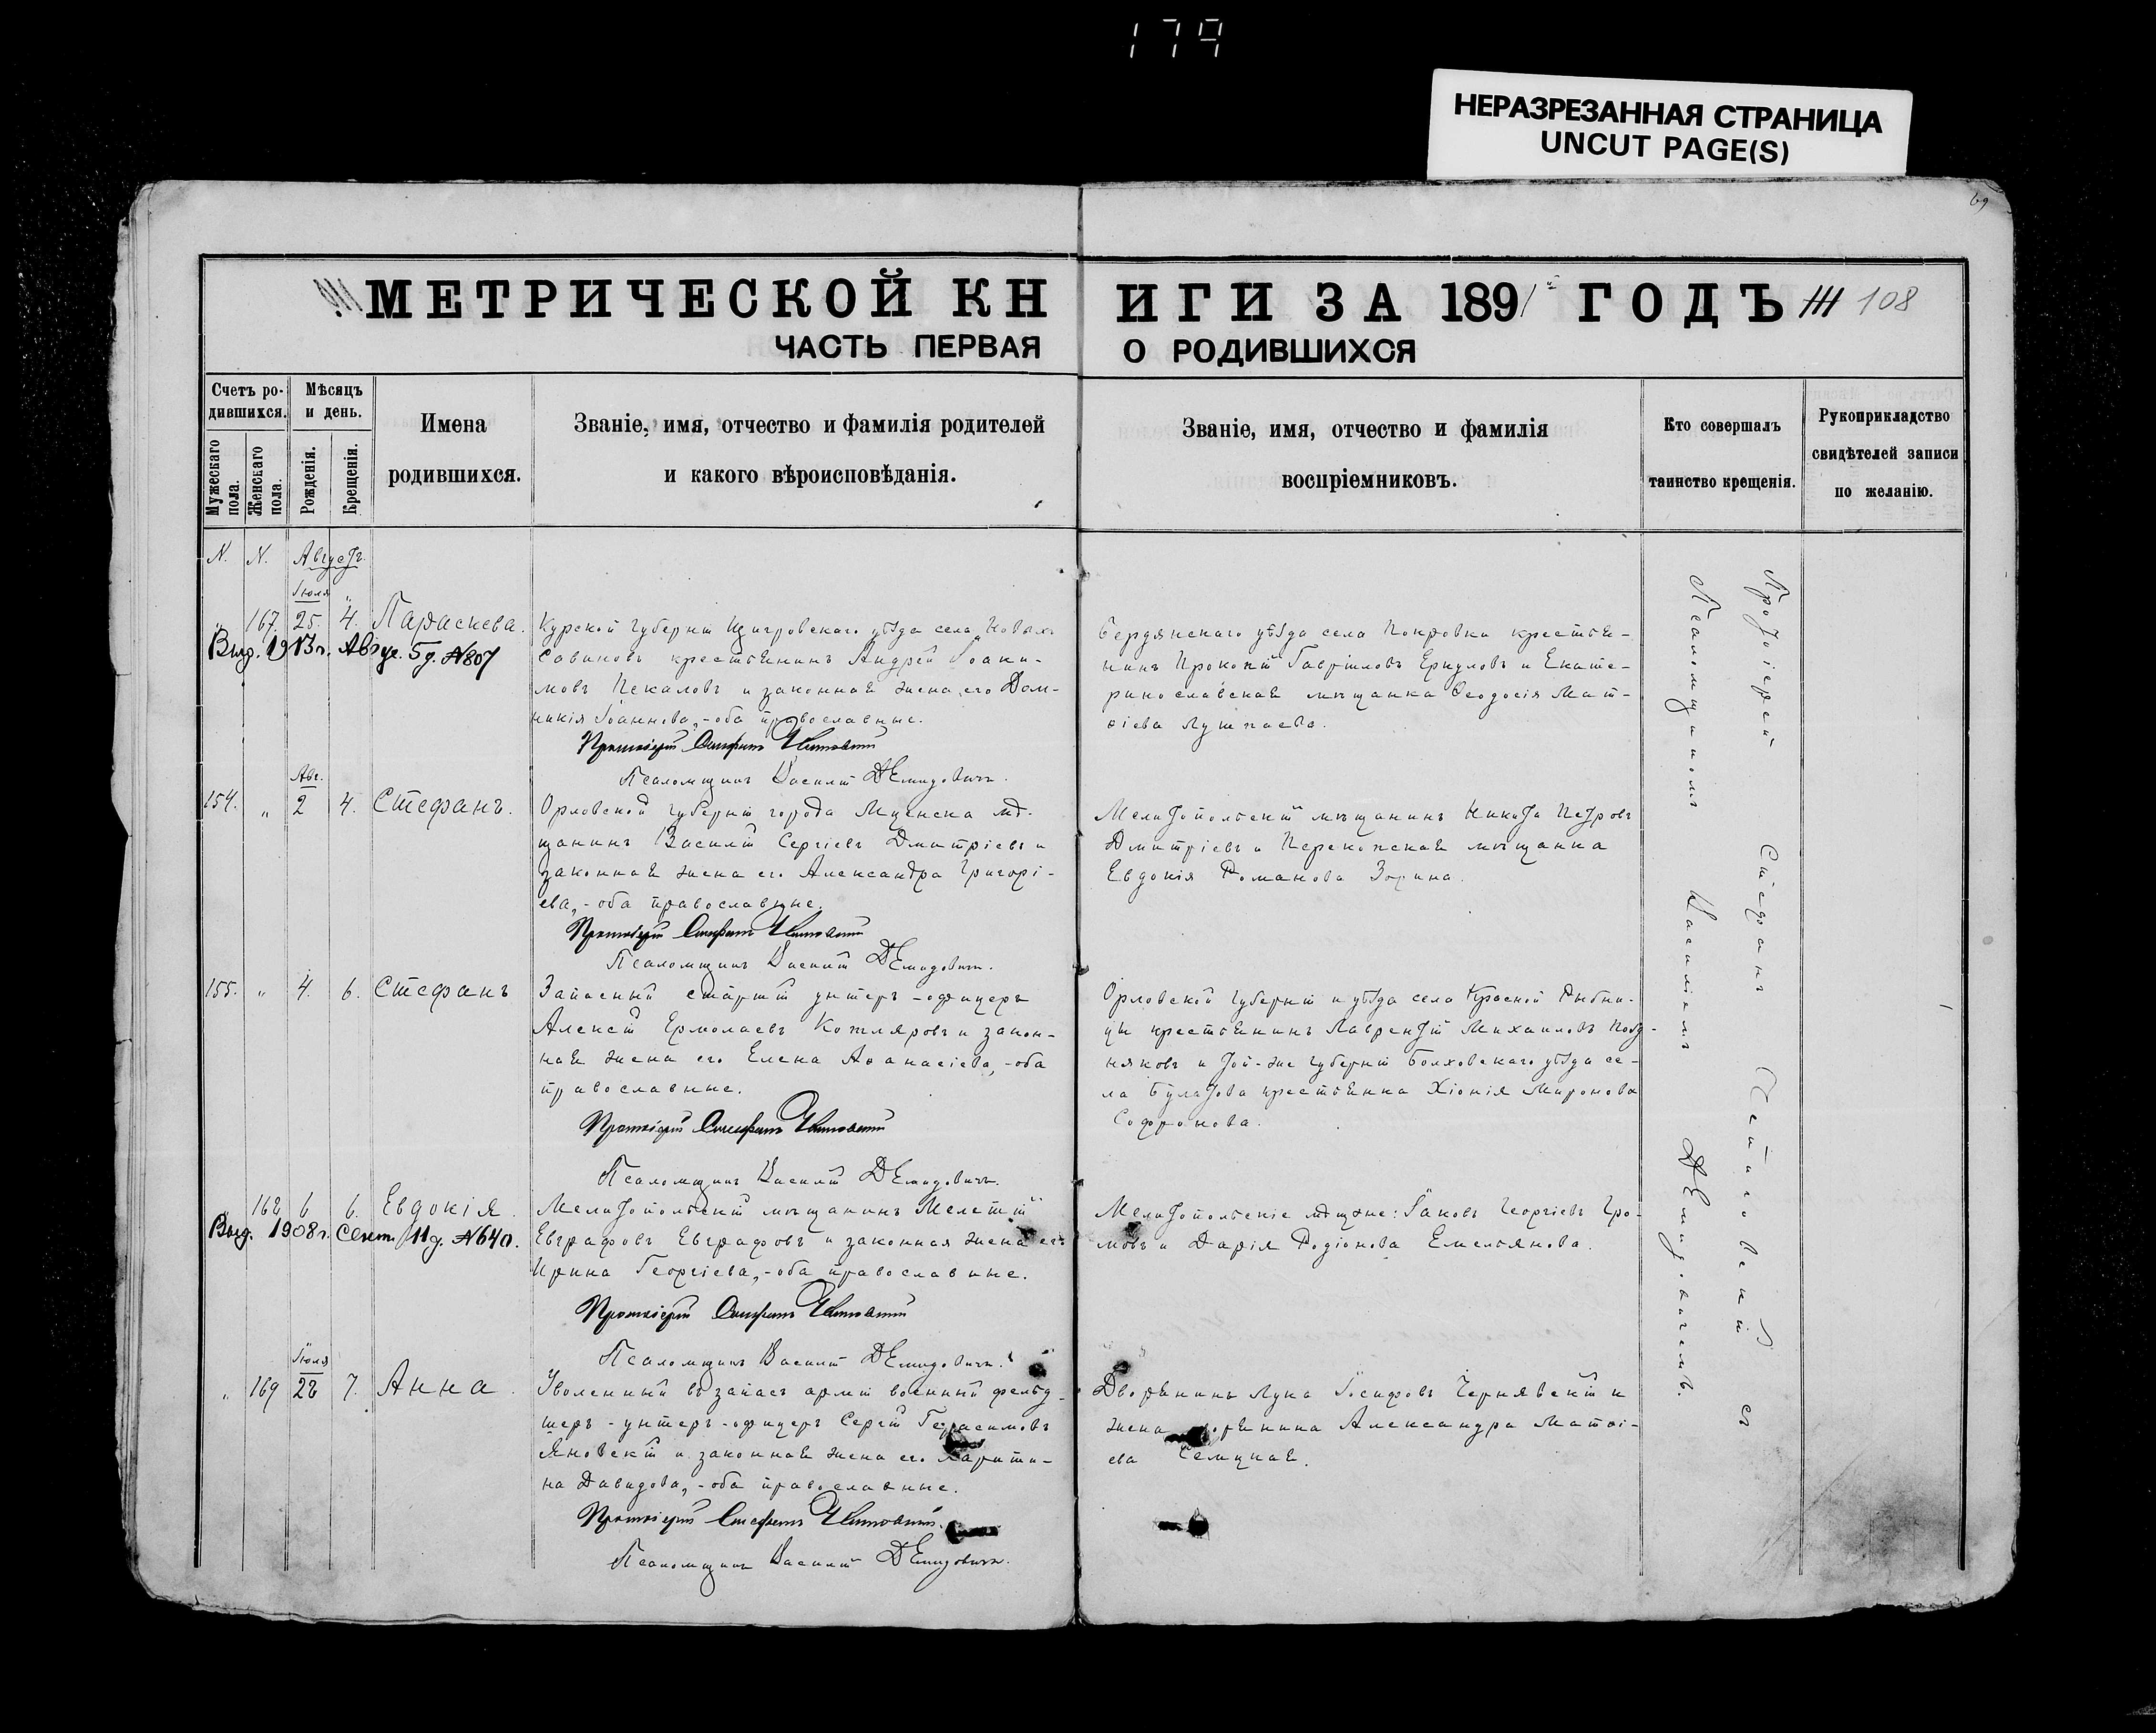 179
НЕРАЗРЕЗАННАЯ СТРАНИЦА
UNCUT PAGE(S)
69
МЕТРИЧЕСКОЙ КНИГИ ЗА 1891 й ГОДЪ 108
ЧАСТЬ ПЕРВАЯ О РОДИВШИХСЯ
Счетъ ро-
дившихся.
Мужескаго пола.
Женскаго пола.
Мѣсяцъ
и день.
Рожденія.
Крещенія.
Имена
родившихся.
Званіе, имя, отчество и фамилія родителей
и какого вѣроисповѣданія.
Званіе, имя, отчество и фамилія
воспріемниковъ.
Кто совершалъ
таинство крещенія.
Рукоприкладство
свидѣтелей записи
по желанію.
N. N. Августъ.
Іюля "
" 167. 25. 4. Параскева.
Выд. 1913 г. Авгус. 5 д. № 807
Курской губерніи Щигровскаго уѣзда села Новыхъ
Савиновъ крестьянинъ Андрей Іоаки-
мовъ Пекаловъ и законная жена его Дом-
никія Іоаннова,-оба православные.
Протоіерей Стефанъ
Псаломщикъ Василій Демидовичъ.
Бердянскаго уѣзда села Покровки крестья-
нинъ Прокопій Гавріиловъ Еркуловъ и Екате-
ринославская мѣщанка Ѳеодосія Мат-
ѳіева
Авг.
154. " 2 4. Стефанъ.
Орловской губерніи города Мценска мѣ-
щанинъ Василій Сергіевъ Дмитріевъ и
законная жена его Александра Григорі-
ева,-оба православные.
Протоіерей Стефанъ
Псаломщикъ Василій Демидовичъ.
Мелитопольскій мѣщанинъ Никита Петровъ
Дмитріевъ и Перекопская мѣщанка
Евдокія Романова Зорина.
155. " 4. 6. Стефанъ
Запасный старшій унтеръ-офицеръ
Алексій Ермолаевъ Котляровъ и закон-
ная жена его Елена Аѳанасіева,-оба
православные.
Протоіерей Стефанъ
Псаломщикъ Василій Демидовичъ.
Орловской губерніи и уѣзда села Красной Рыбни-
цы крестьянинъ Лаврентій Михаиловъ Позд-
няковъ и той-же губерніи Болховскаго уѣзда се-
ла Булатова крестьянка Хіонія Миронова
Софронова.
" 168 6 6. Евдокія.
Выд. 1908 г. Сент. 11 д. № 640.
Мелитопольскій мѣщанинъ Мелетій
Евграфовъ Евграфовъ и законная жена его
Ирина Георгіева,-оба православные.
Протоіерей Стефанъ
Псаломщикъ Василій Демидовичъ.
Мелитопольскіе мѣщане: Іаковъ Георгіевъ Гро-
мовъ и Дарія Родіонова Емельянова.
Іюля
" 169 28 7. Анна.
Уволенный въ запасъ арміи военный фельд-
шеръ-унтеръ-офицеръ Сергій Герасимовъ
Яновскій и законная жена его Харити-
на Давидова,-оба православные.
Протоіерей Стефанъ
Псаломщикъ Василій Демидовичъ.
Дворянинъ Лука Іосифовъ Чернявскій и
жена дворянина Александра Матѳі-
ева
Протоіерей Стефанъ съ
Псаломщикомъ Василіемъ Демидовичемъ.